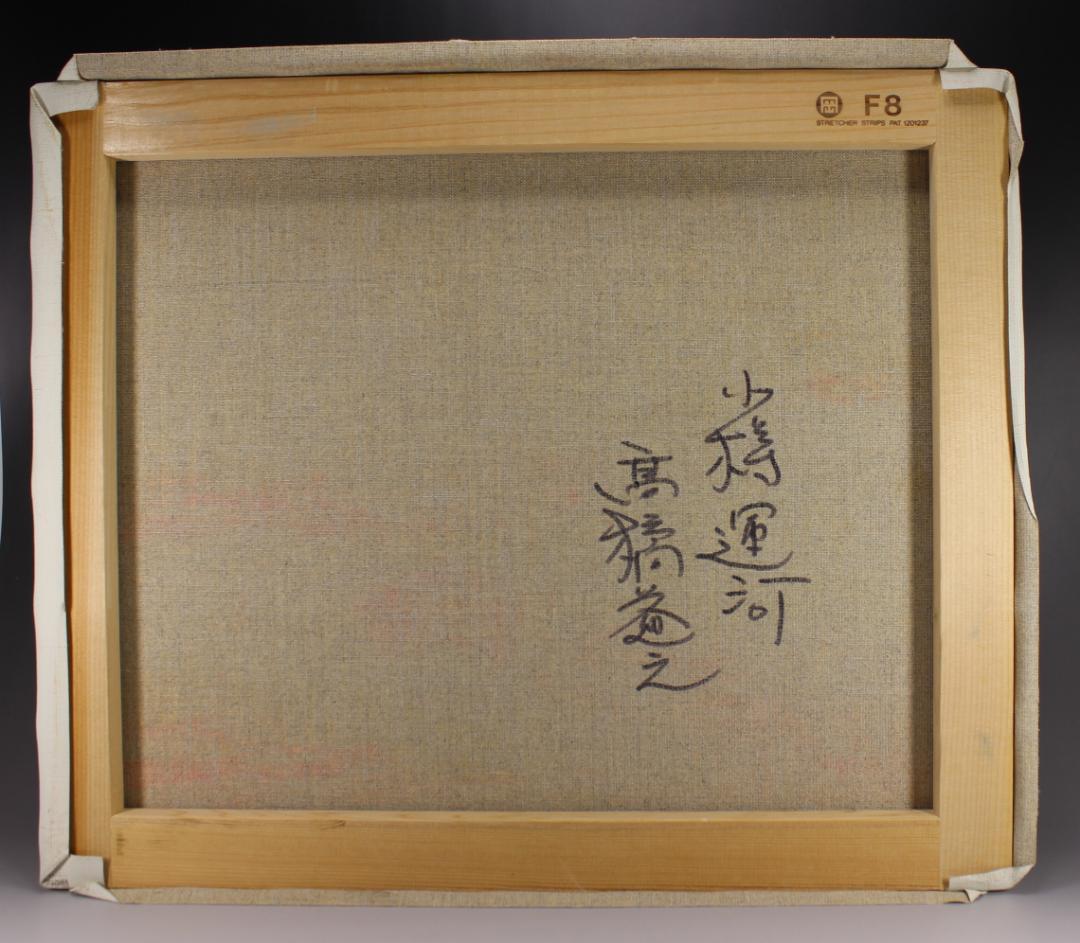 F8
STRETCHER STRIPS PAT.1201237
小樽運河
高橋道之